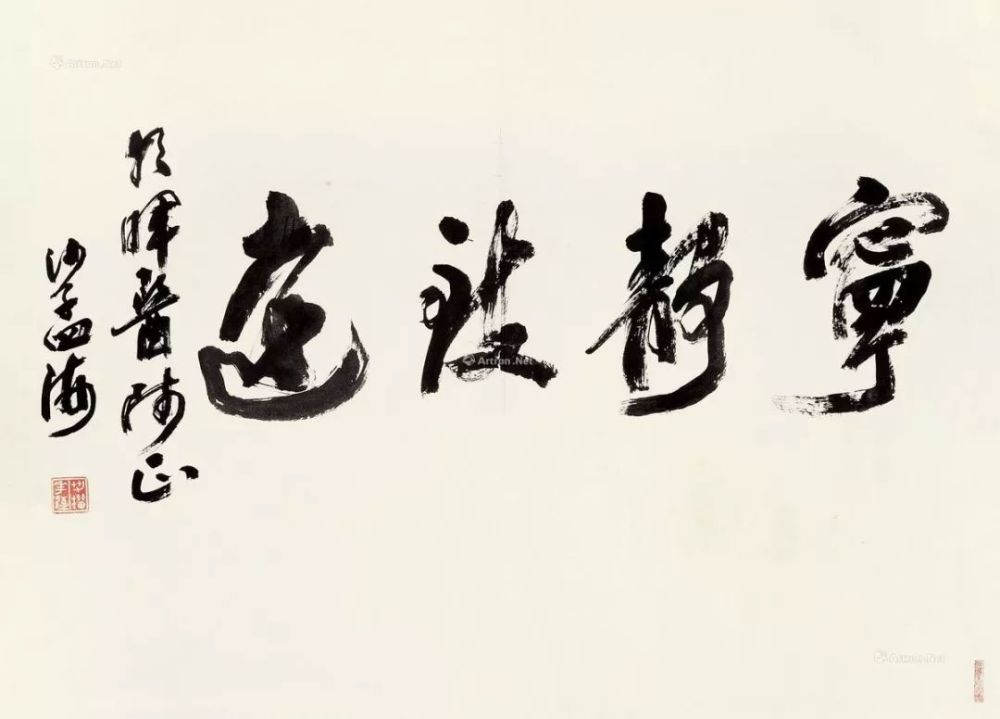 寧靜致遠
暉醫師正
沙孟海
Artron.Net
Artron.Net
Artron.Net